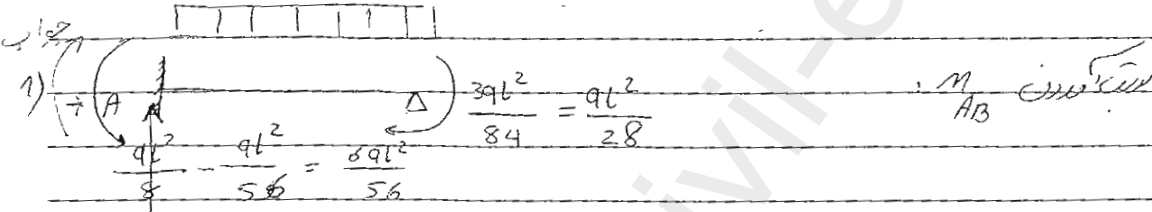 جواب
1) + A Δ 3ql²/84 = ql²/28 بدست آوردن M_AB
ql²/8 - ql²/56 = 6ql²/56